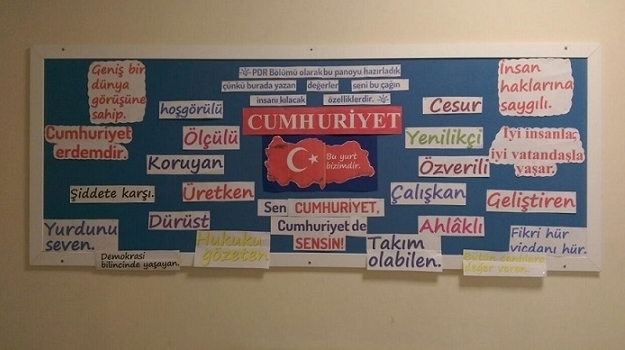 PDR Bölümü olarak bu panoyu hazırladık
çünkü burada yazan değerler seni bu çağın
insanı kılacak özelliklerdir.
CUMHURİYET
Bu yurt
bizimdir.
Sen CUMHURİYET,
Cumhuriyet de
SENSİN!
Geniş bir
dünya
görüşüne
sahip.
hoşgörülü
Cumhuriyet
erdemdir.
Ölçülü
Koruyan
Şiddete karşı.
Üreten
Yurdunu
seven.
Dürüst
Demokrasi
bilincinde yaşayan.
Hukuku
gözeten.
Cesur
İnsan
haklarına
saygılı.
Yenilikçi
İyi insanla,
iyi vatandaşla
yaşar.
Özverili
Çalışkan
Geliştiren
Ahlâklı
Fikri hür
vicdanı hür.
Takım
olabilen.
değer veren.